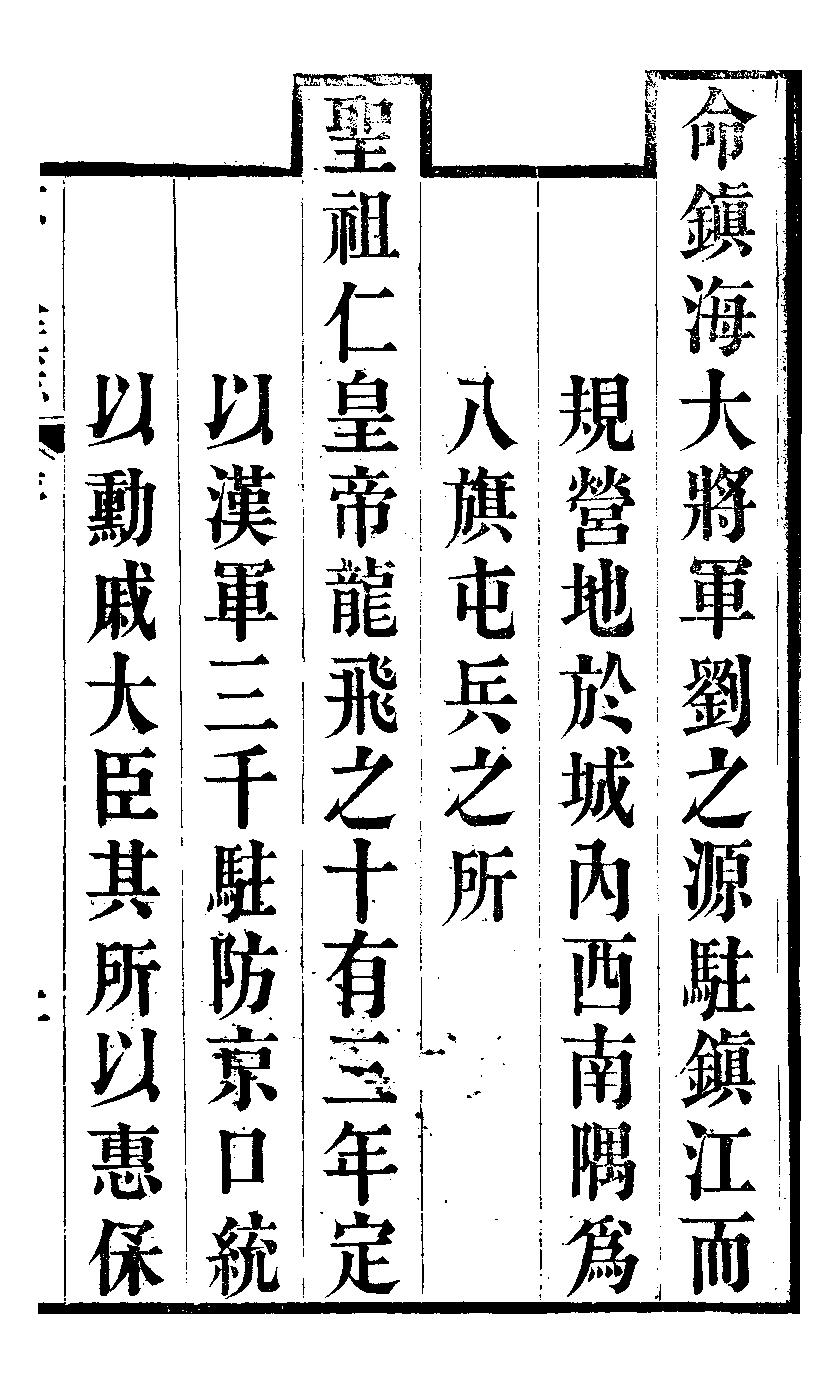 命鎭海大將軍劉之源駐鎭江而
規營地於城內西南隅爲
八旗屯兵之所
聖祖仁皇帝龍飛之十有三年定
以漢軍三千駐防京口統
以勳戚大臣其所以惠保